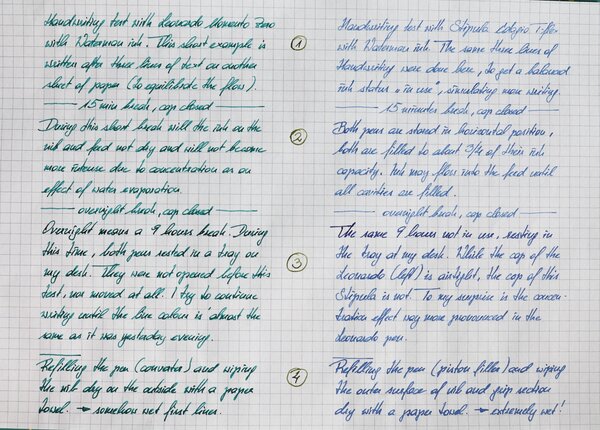 Handwriting test with Leonardo Momento Zero
with Waterman ink. This short example is
written after three lines of text on another
sheet of paper (to equilibrate the flow).
15 min break, cap closed
During this short break will the ink on the
nib and feed not dry and will not become
more intense due to concentration as an
effect of water evaporation.
overnight break, cap closed
Overnight means a 9 hours break. During
this time, both pens rested in a tray on
my desk. They were not opened before this
test, nor moved at all. I try to continue
writing until the line colour is almost the
same as it was yesterday evening.
Refilling the pen (converter) and wiping
the nib dry on the outside with a paper
towel. → somehow wet first lines.
1
2
3
4
Handwriting test with Stipula
with Waterman ink. The same three lines of
Handwriting were done here, to get a balanced
ink status "in use", simulating more writing.
15 minutes break, cap closed
Both pens are stored in horizontal position,
both are filled to about 3/4 of their ink
capacity. Ink may flow into the feed until
all cavities are filled.
overnight break, cap closed
The same 9 hours not in use, resting in
the tray at my desk. While the cap of the
Leonardo (left) is airtight, the cap of this
Stipula is not. To my surprise is the concen-
tration effect way more pronounced in the
Leonardo pen.
Refilling the pen (piston filler) and wiping
the outer surface of nib and grip section
dry with a paper towel. → extremely wet!